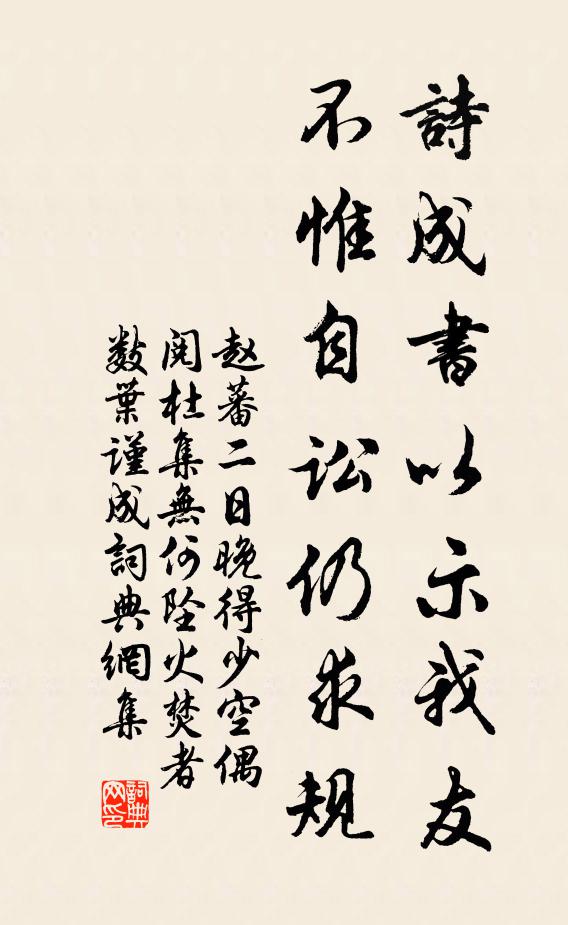 詩成書以示我友
不惟自訟仍求規
赵蕃二日晚得少空偶
閱杜集無何墜火焚者
数葉谨成詞典網集
詞典网印